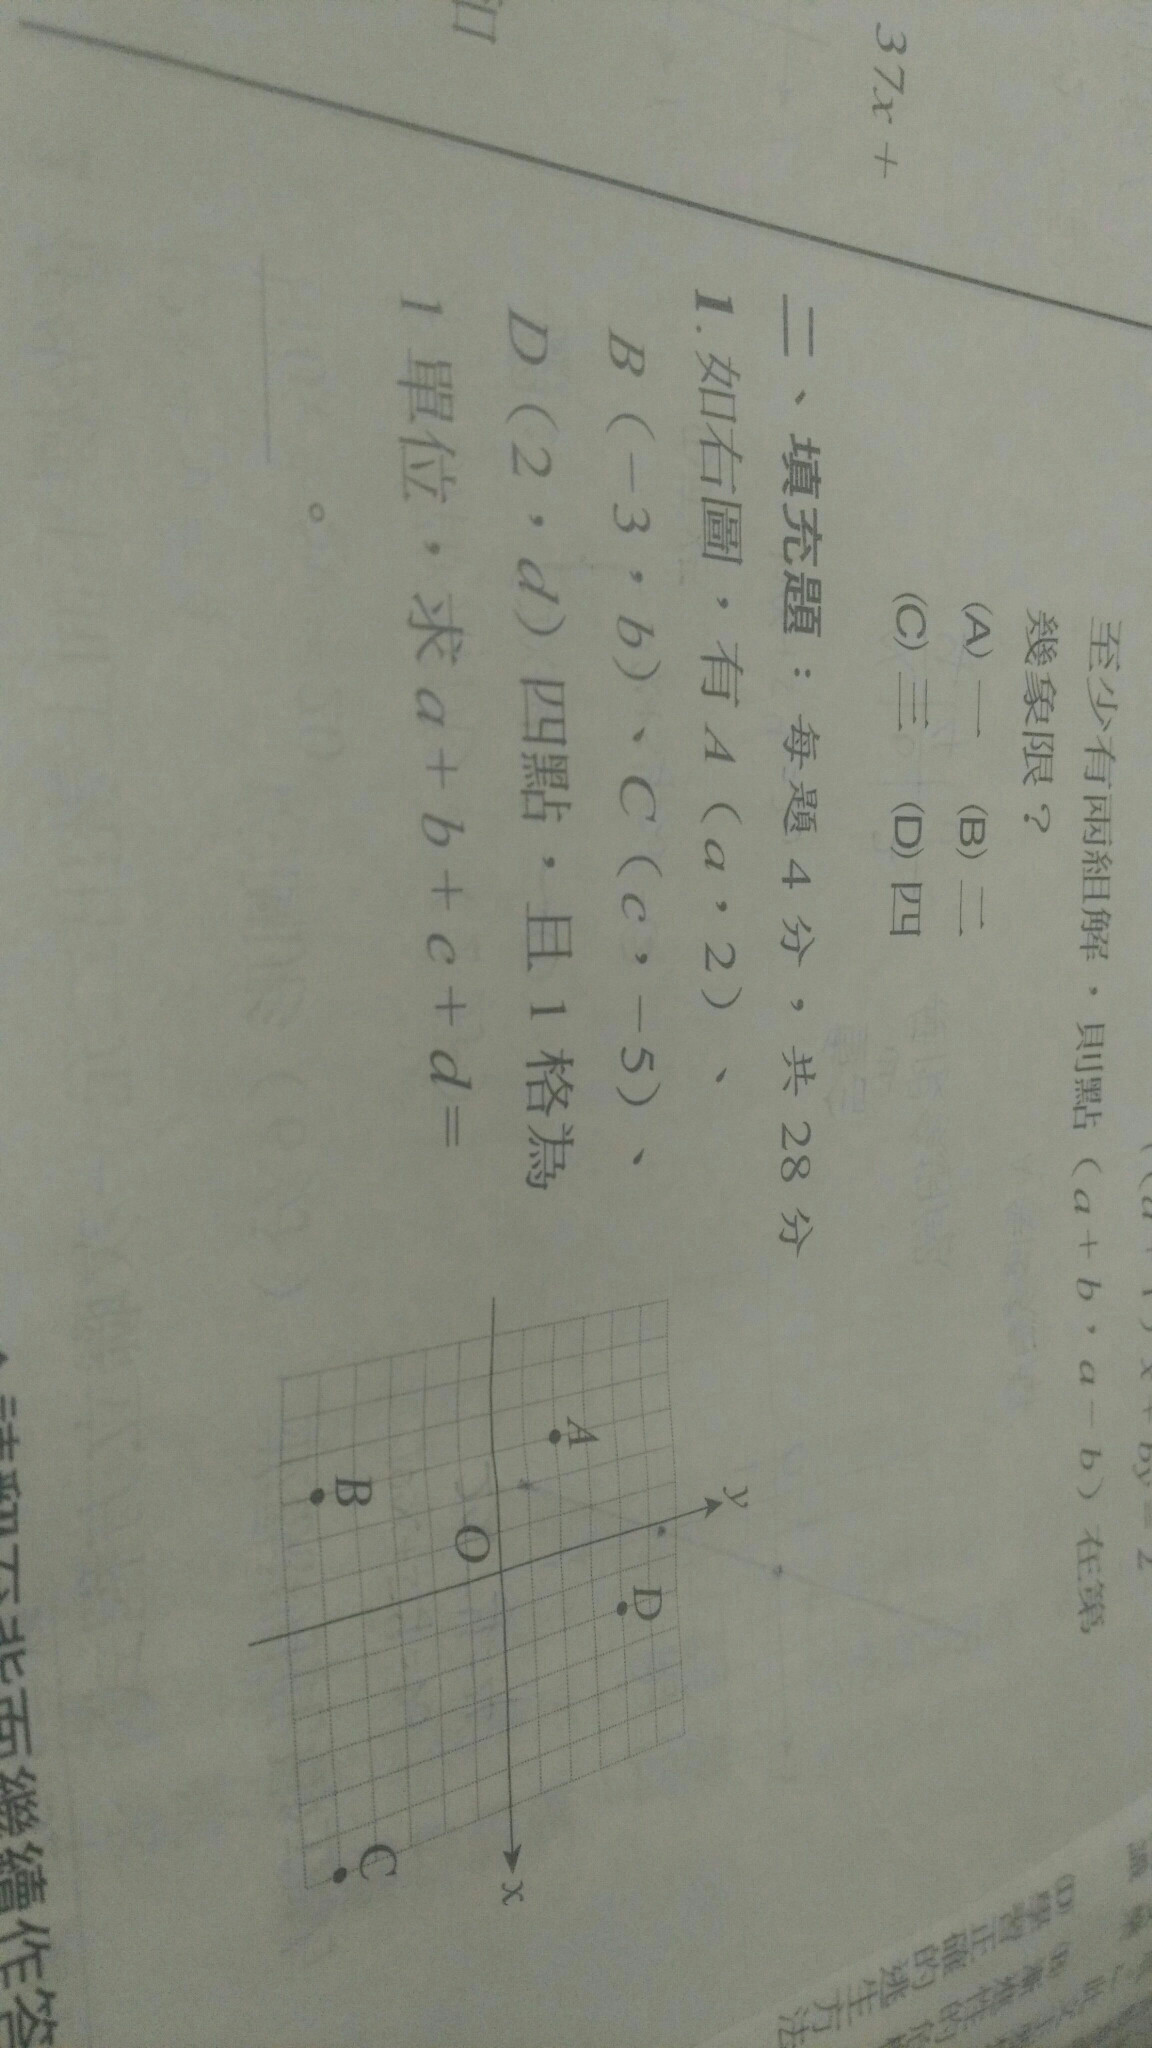 37x+
至少有兩組解，則點（a+b，a－b）在第
幾象限？
(A) 一 (B) 二
(C) 三 (D) 四
二、填充題：每題 4 分，共 28 分
1. 如右圖，有 A（a，2）、
B（－3，b）、C（c，－5）、
D（2，d）四點，且 1 格為
1 單位，求 a+b+c+d=
。
y
A
D
O
x
B
C